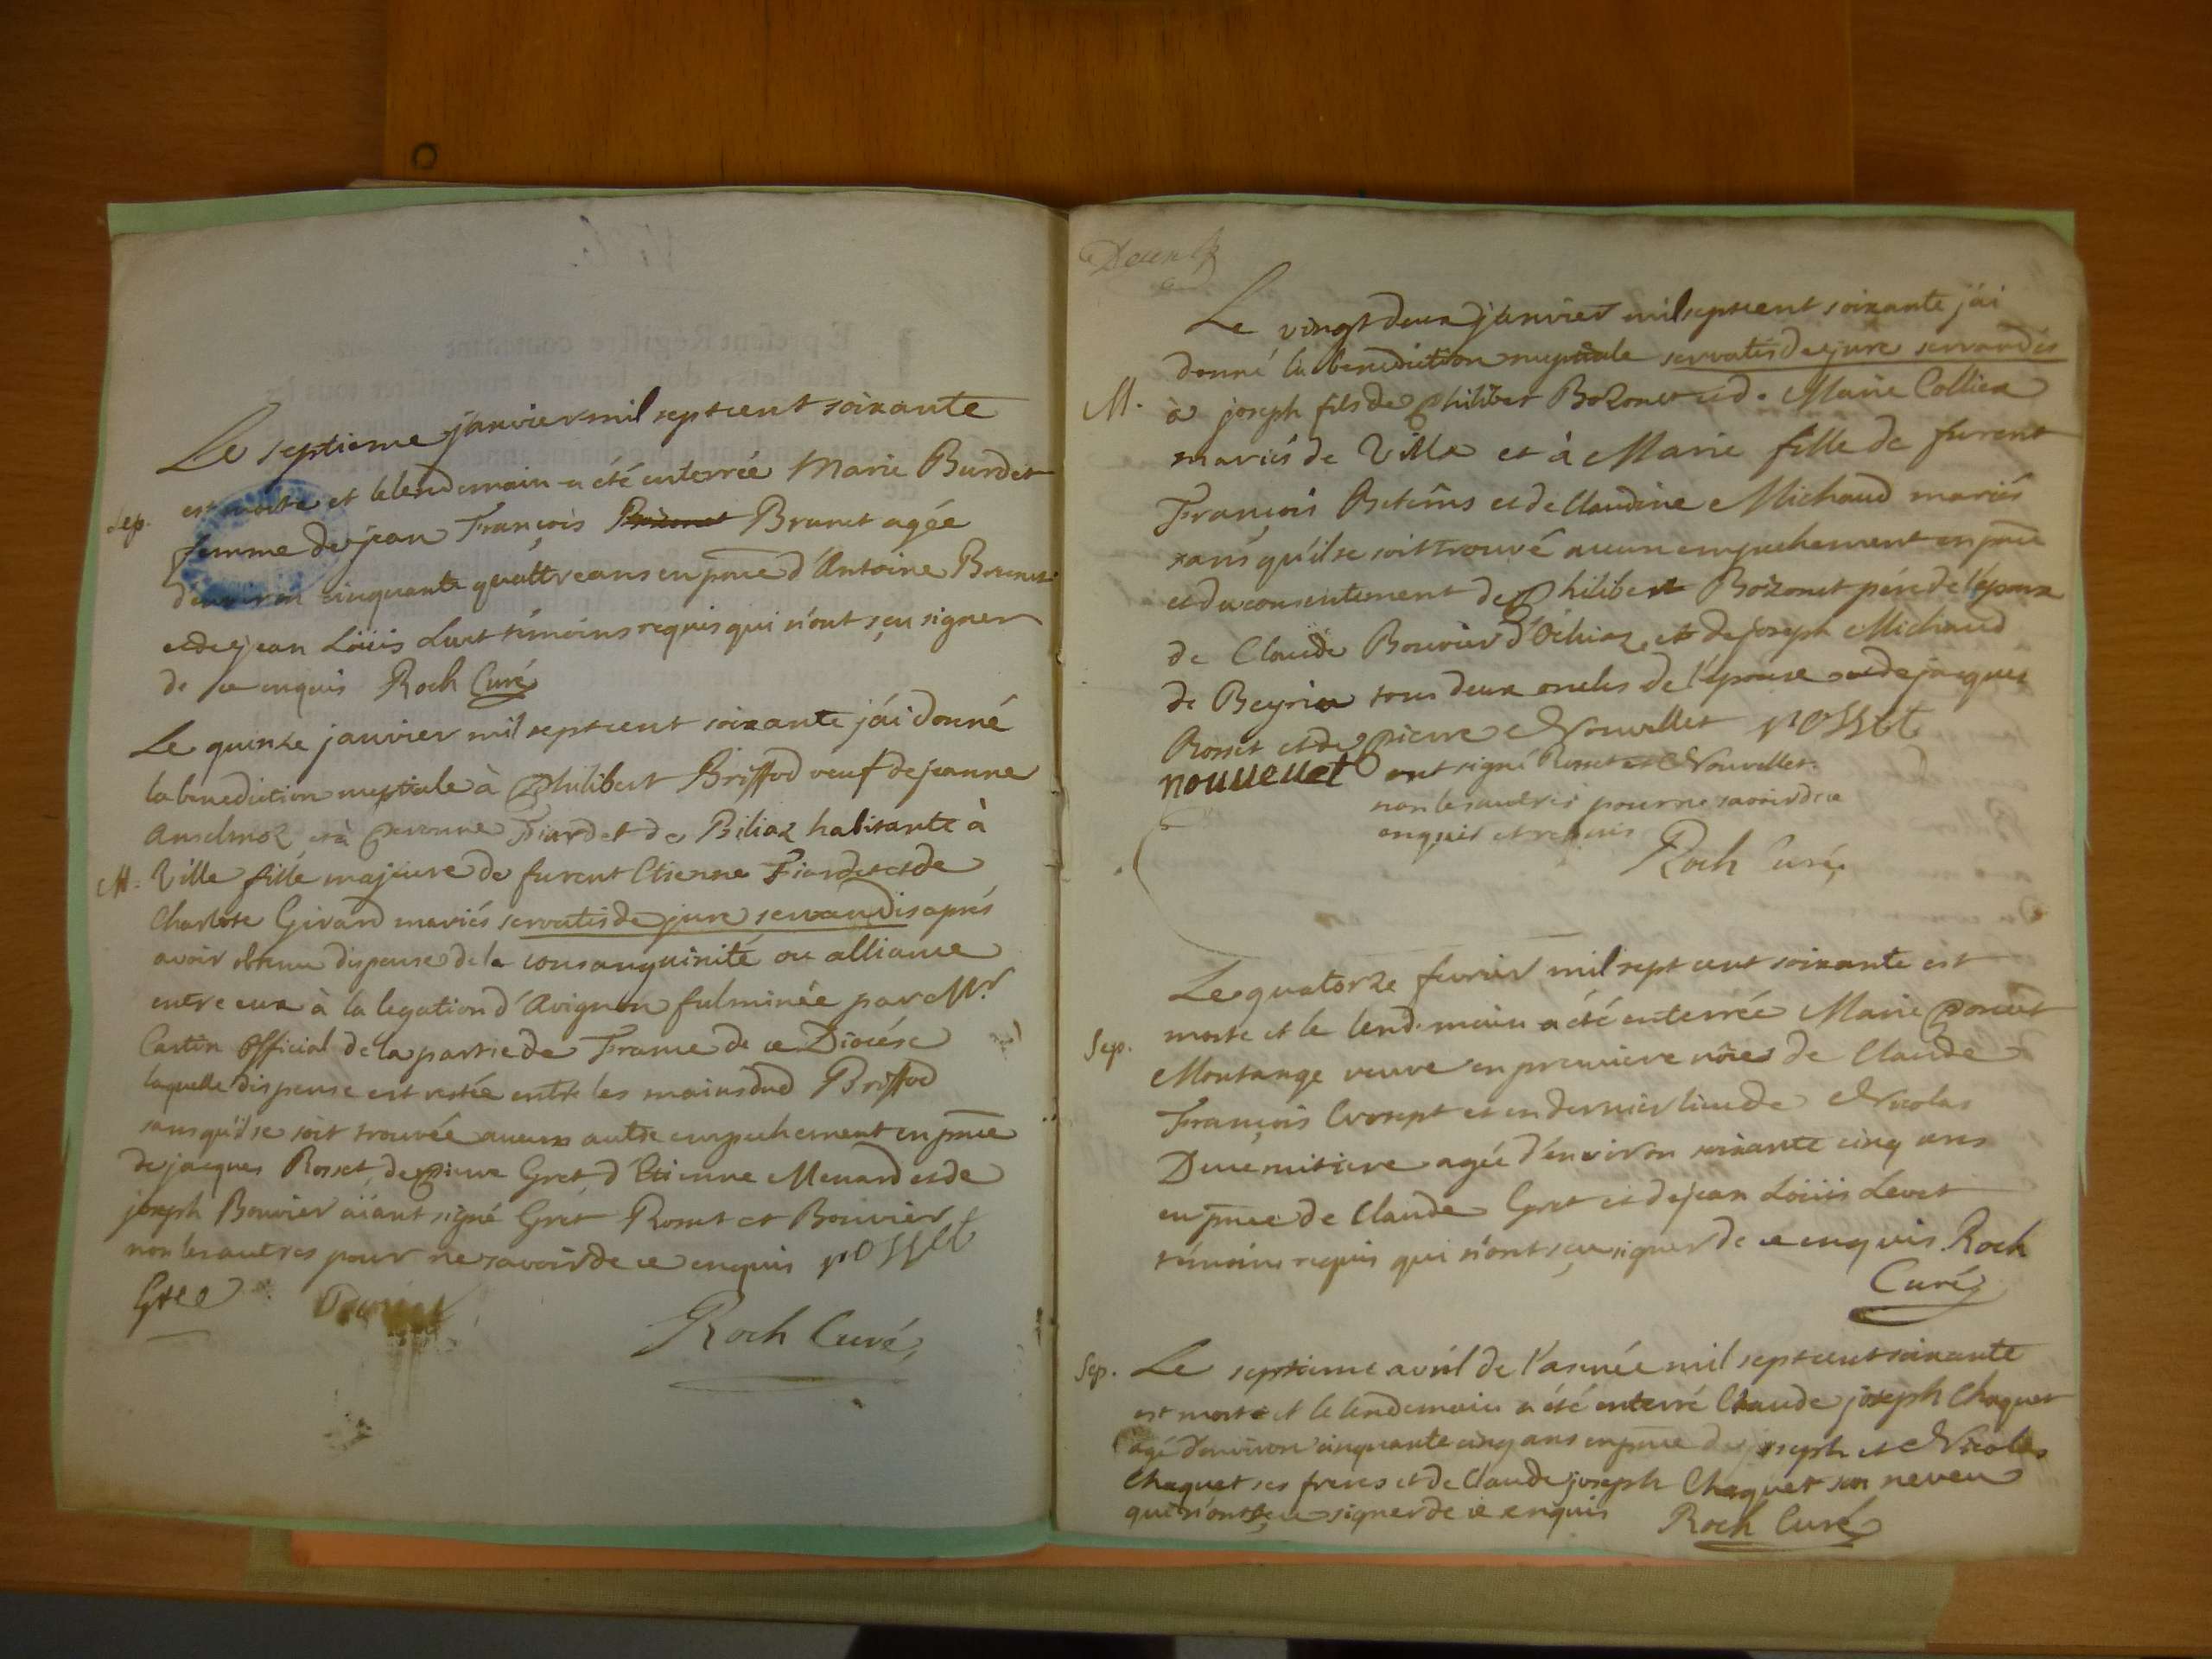 Le septieme janvier mil sept cent soixante
Sep. est morte et le lendemain a été enterrée Marie Burdet
femme de jean François Brunet agée
d'environ cinquante quattre ans en pnce d'Antoine Brunet
et de jean Loüis Luet témoins requis qui n'ont sçeu signer
de ce enquis Roch Curé
Le quinze janvier mil sept cent soixante j'ái donné
la benediction nuptiale à Philibert Briffod veuf de jeanne
Anselmoz et à Pernonne Fiardet de Biliaz habitante à
M. Ville fille majeure de furent Etienne Fiardet et de
Charlote Girard mariés servatis de jure servandis aprés
avoir obtenu dispense de la consanguinité ou alliance
entre eux à la legation d'Avignon fulminée par Mr
Castin Official de la partie de France de ce Diocése
laquelle dispense est restée entre les mains dud Briffod
sans qu'il se soit trouvée aucun autre empechement en pnce
de jacques Rosset, de Pierre Gret d'Etienne Menard et de
joseph Bouvier aïant signé Gret Rosset et Bouvier
non les autres pour ne savoir de ce enquis rosset
Gre
Roch Curé,
Le vingt deux janvier mil sept cent soixante j'ai
donné la benediction nuptiale servatis de jure servandis
M. à joseph fils de Philibert Bozonet et d. Marie Collien
mariés de Ville et à Marie fille de furent
François Betems et de Claudine Michaud mariés
sans qu'il se soit trouvé aucun empechement en pnce
et du consentement de Philibert Bozonet pére de l'epoux
de Claude Bouvier d'Ochiaz et de joseph Michaud
de Beyriu tous deux oncles de l'épouse et de jacques
Rosset et de Pierre Nouvellet rosset
nouuellet ont signé Rosset et Nouvellet
non les autres pour ne savoir de ce
enquis et requis
Roch Curé,
Le quatorze fevrier mil sept cent soixante est
Sep. morte et le lendemain a été enterrée Marie Poncet
Montange veuve en premiere nôces de Claude
François Crosept et en dernier lieu de Nicolas
Ducmitiere agée d'environ soixante cinq ans
en pnce de Claude Gret et de jean Loüis Levet
témoins requis qui n'ont sçeu signer de ce enquis Roch
Curé
Sep. Le septieme avril de l'année mil sept cent soixante
est mort et le lendemain a été enterré Claude joseph Chaquet
agé d'environ cinquante cinq ans en pnce de joseph et Nicolas
Chaquet ses freres et de Claude joseph Chaquet son neveu
qui n'ont sçeu signer de ce enquis Roch Curé